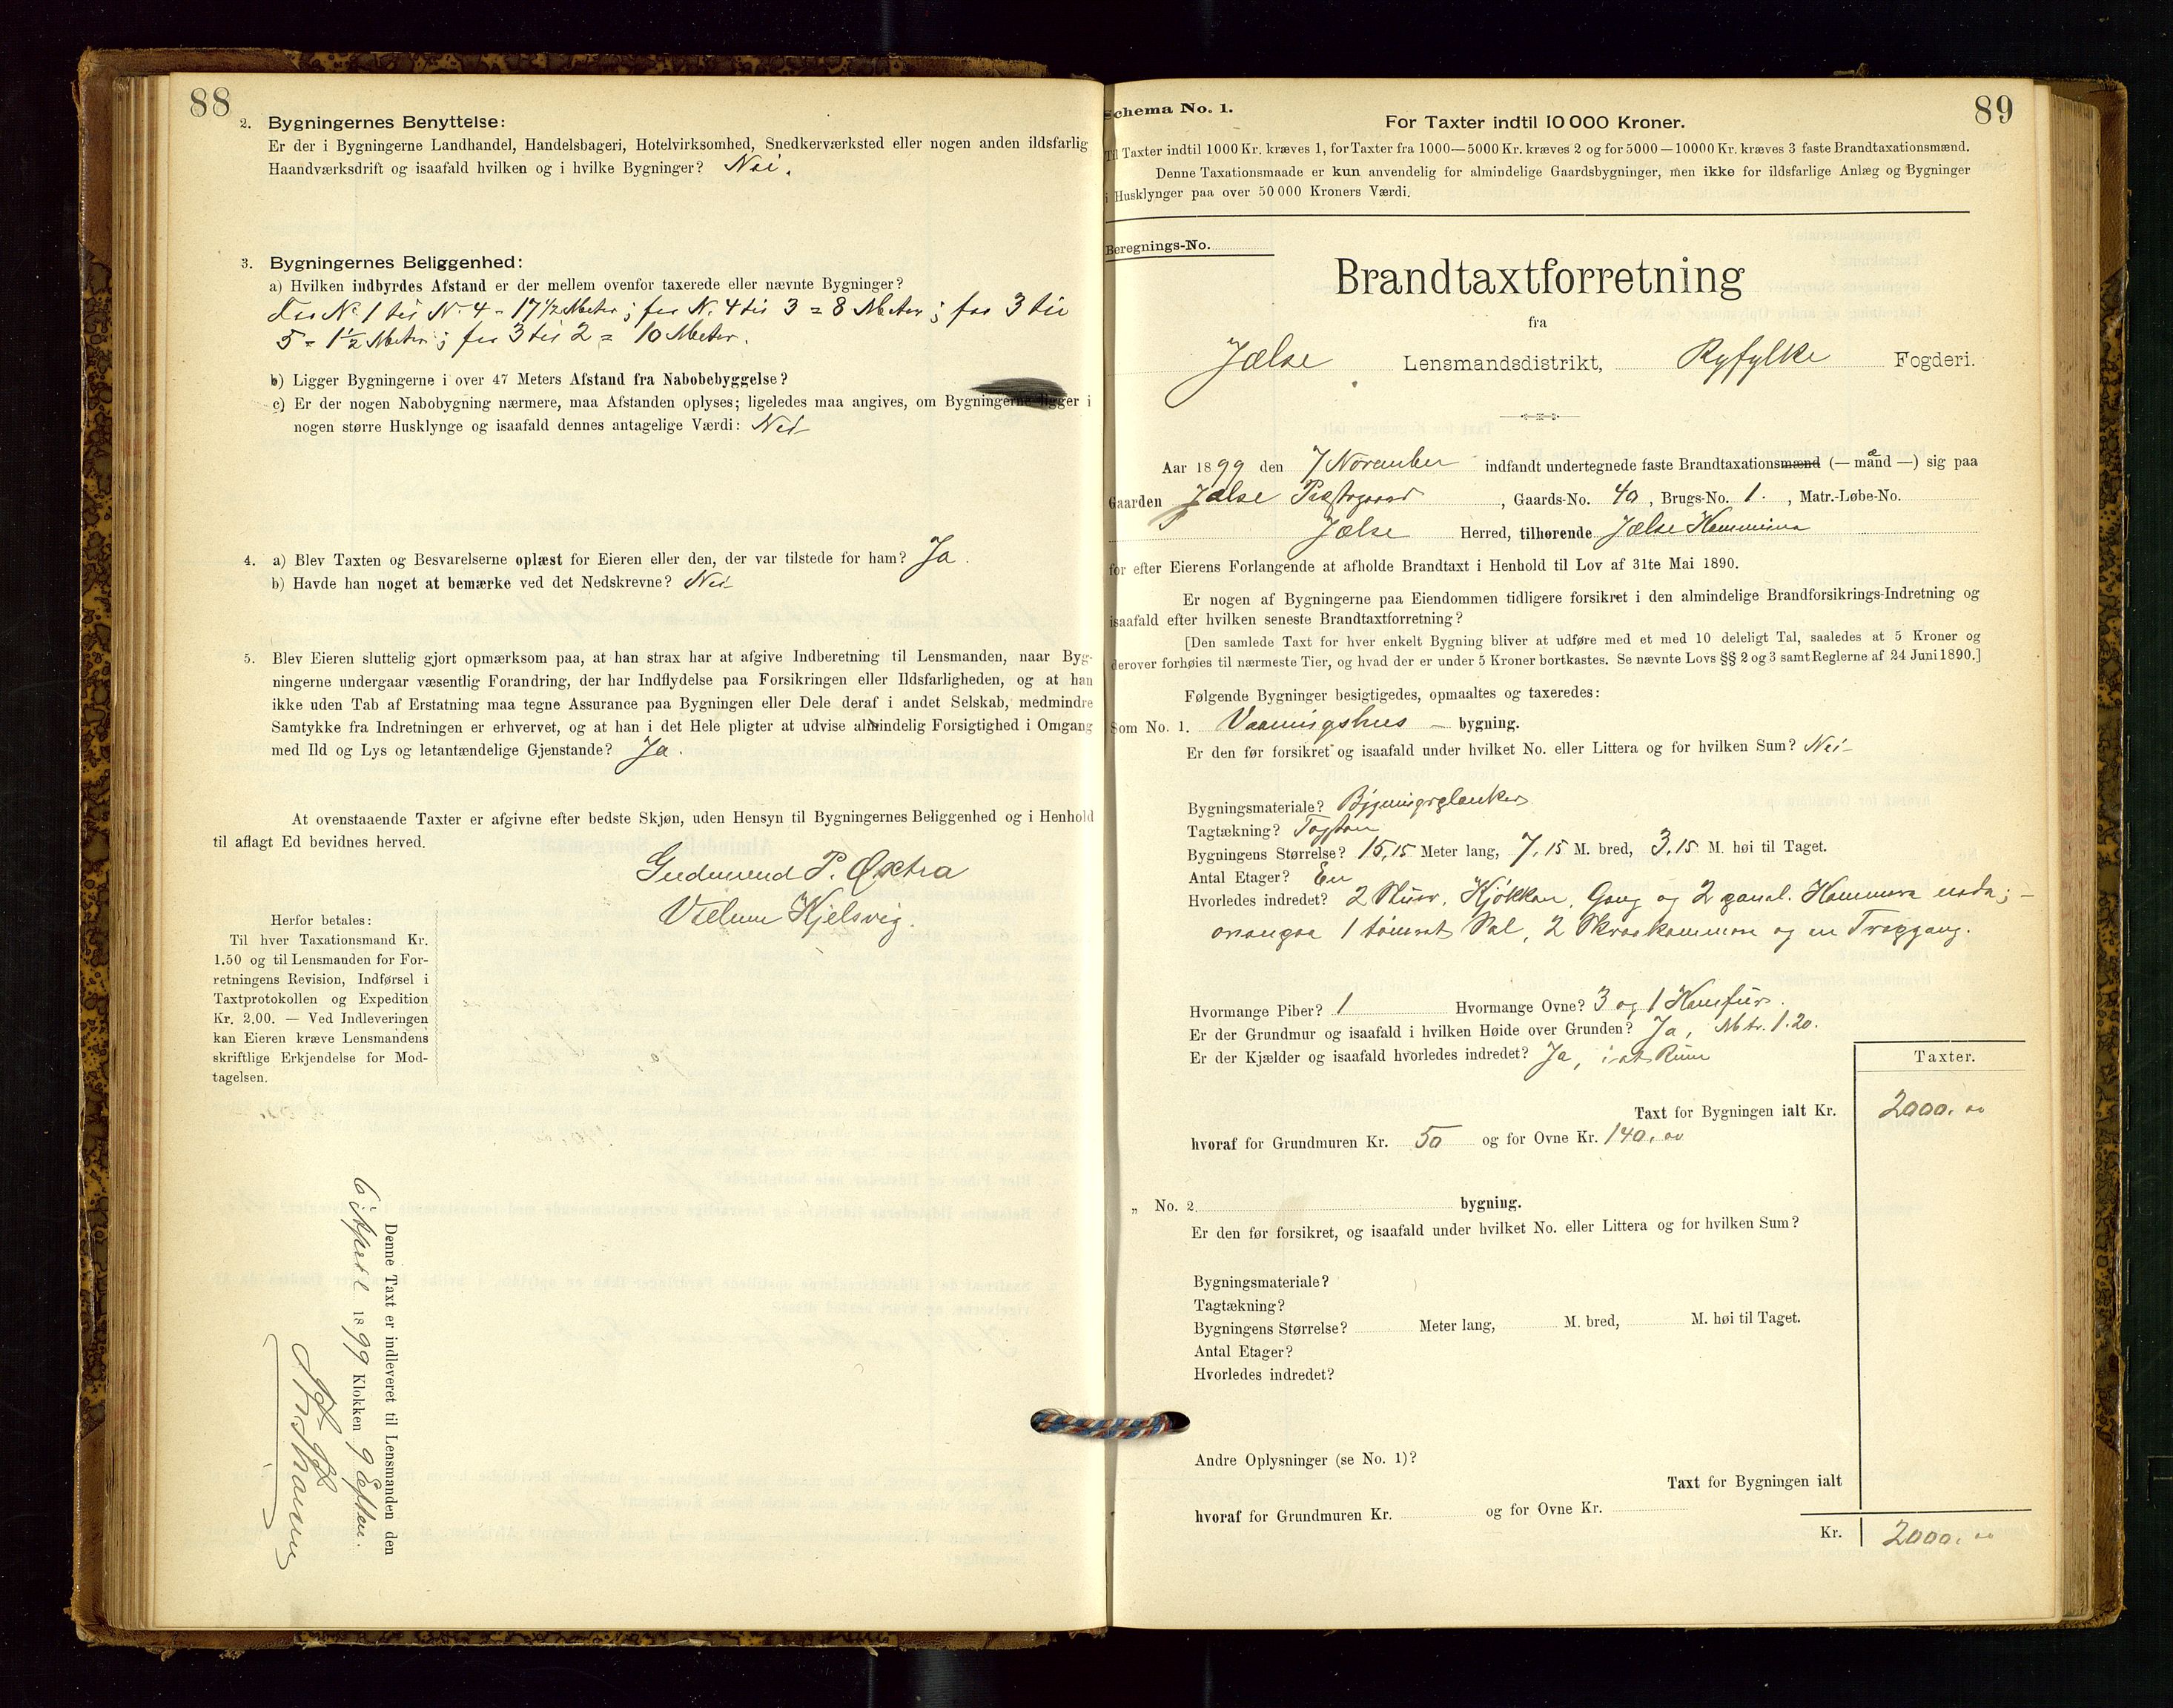 88
2. Bygningernes Benyttelse:
Er der i Bygningerne Landhandel, Handelsbageri, Hotelvirksomhed, Snedkerværksted eller nogen anden ildsfarlig
Haandværksdrift og isaafald hvilken og i hvilke Bygninger? Nei.
3. Bygningernes Beliggenhed:
a) Hvilken indbyrdes Afstand er der mellem ovenfor taxerede eller nævnte Bygninger?
Fra No 1 til No 4 = 17 1/2 Meter; fra N. 4 til 3 = 8 Meter; fra 3 til
5 = 1 1/2 Meter; fra 3 til 2 = 10 Meter.
b) Ligger Bygningerne i over 47 Meters Afstand fra Nabobebyggelse?
c) Er der nogen Nabobygning nærmere, maa Afstanden oplyses; ligeledes maa angives, om Bygningerne ligger i
nogen større Husklynge og isaafald dennes antagelige Værdi: Nei
4. a) Blev Taxten og Besvarelserne oplæst for Eieren eller den, der var tilstede for ham? Ja.
b) Havde han noget at bemærke ved det Nedskrevne? Nei
5. Blev Eieren sluttelig gjort opmærksom paa, at han strax har at afgive Indberetning til Lensmanden, naar Byg-
ningerne undergaar væsentlig Forandring, der har Indflydelse paa Forsikringen eller Ildsfarligheden, og at han
ikke uden Tab af Erstatning maa tegne Assurance paa Bygningen eller Dele deraf i andet Selskab, medmindre
Samtykke fra Indretningen er erhvervet, og at han i det Hele pligter at udvise almindelig Forsigtighed i Omgang
med Ild og Lys og letantændelige Gjenstande? Ja.
At ovenstaaende Taxter er afgivne efter bedste Skjøn, uden Hensyn til Bygningernes Beliggenhed og i Henhold
til aflagt Ed bevidnes herved.
Gudmund P. Øxtra
Vilum Hjelsvig.
Herfor betales:
Til hver Taxationsmand Kr.
1.50 og til Lensmanden for For-
retningens Revision, Indførsel i
Taxtprotokollen og Expedition
Kr. 2.00. — Ved Indleveringen
kan Eieren kræve Lensmandens
skriftlige Erkjendelse for Mod-
tagelsen.
Denne Taxt er indleveret til Lensmanden den
6 April 1899 Klokken 9 Eftm.
89
Schema No. 1.
For Taxter indtil 10 000 Kroner.
Til Taxter indtil 1000 Kr. kræves 1, for Taxter fra 1000—5000 Kr. kræves 2 og for 5000—10000 Kr. kræves 3 faste Brandtaxationsmænd.
Denne Taxationsmaade er kun anvendelig for almindelige Gaardsbygninger, men ikke for ildsfarlige Anlæg og Bygninger
i Husklynger paa over 50 000 Kroners Værdi.
Beregnings-No.
Brandtaxtforretning
fra
Jælse Lensmandsdistrikt, Ryfylke Fogderi.
Aar 1899 den 7 November indfandt undertegnede faste Brandtaxationsmænd (— mand —) sig paa
Gaarden Jælse Prestegaard, Gaards-No. 40, Brugs-No. 1., Matr.-Løbe-No.
Jælse Herred, tilhørende Jælse Kommune
for efter Eierens Forlangende at afholde Brandtaxt i Henhold til Lov af 31te Mai 1890.
Er nogen af Bygningerne paa Eiendommen tidligere forsikret i den almindelige Brandforsikrings-Indretning og
isaafald efter hvilken seneste Brandtaxtforretning?
[Den samlede Taxt for hver enkelt Bygning bliver at udføre med et med 10 deleligt Tal, saaledes at 5 Kroner og
derover forhøies til nærmeste Tier, og hvad der er under 5 Kroner bortkastes. Se nævnte Lovs §§ 2 og 3 samt Reglerne af 24 Juni 1890.]
Følgende Bygninger besigtigedes, opmaaltes og taxeredes:
Som No. 1. Vaaningshus — bygning.
Er den før forsikret og isaafald under hvilket No. eller Littera og for hvilken Sum? Nei
Bygningsmateriale? Bygningsplanker
Tagtækning? Tagsten
Bygningens Størrelse? 15,15 Meter lang, 7,15 M. bred, 3,15 M. høi til Taget.
Antal Etager? En
Hvorledes indredet? 2 Stuer, Kjøkken, Gang og 2 panel. Kammere nede; —
ovenpaa 1 tømret Sal, 2 Skraakammere og en Trapgang.
Hvormange Piber? 1 Hvormange Ovne? 3 og 1 Komfur.
Er der Grundmur og isaafald i hvilken Høide over Grunden? Ja, Mtr. 1.20.
Er der Kjælder og isaafald hvorledes indredet? Ja, i et Rum
Taxter.
Taxt for Bygningen ialt Kr. 2000.00
hvoraf for Grundmuren Kr. 50 og for Ovne Kr. 140.00
„ No. 2 bygning.
Er den før forsikret, og isaafald under hvilket No. eller Littera og for hvilken Sum?
Bygningsmateriale?
Tagtækning?
Bygningens Størrelse? Meter lang, M. bred, M. høi til Taget.
Antal Etager?
Hvorledes indredet?
Andre Oplysninger (se No. 1)?
Taxt for Bygningen ialt
hvoraf for Grundmuren Kr. og for Ovne Kr.
Kr. 2000.00